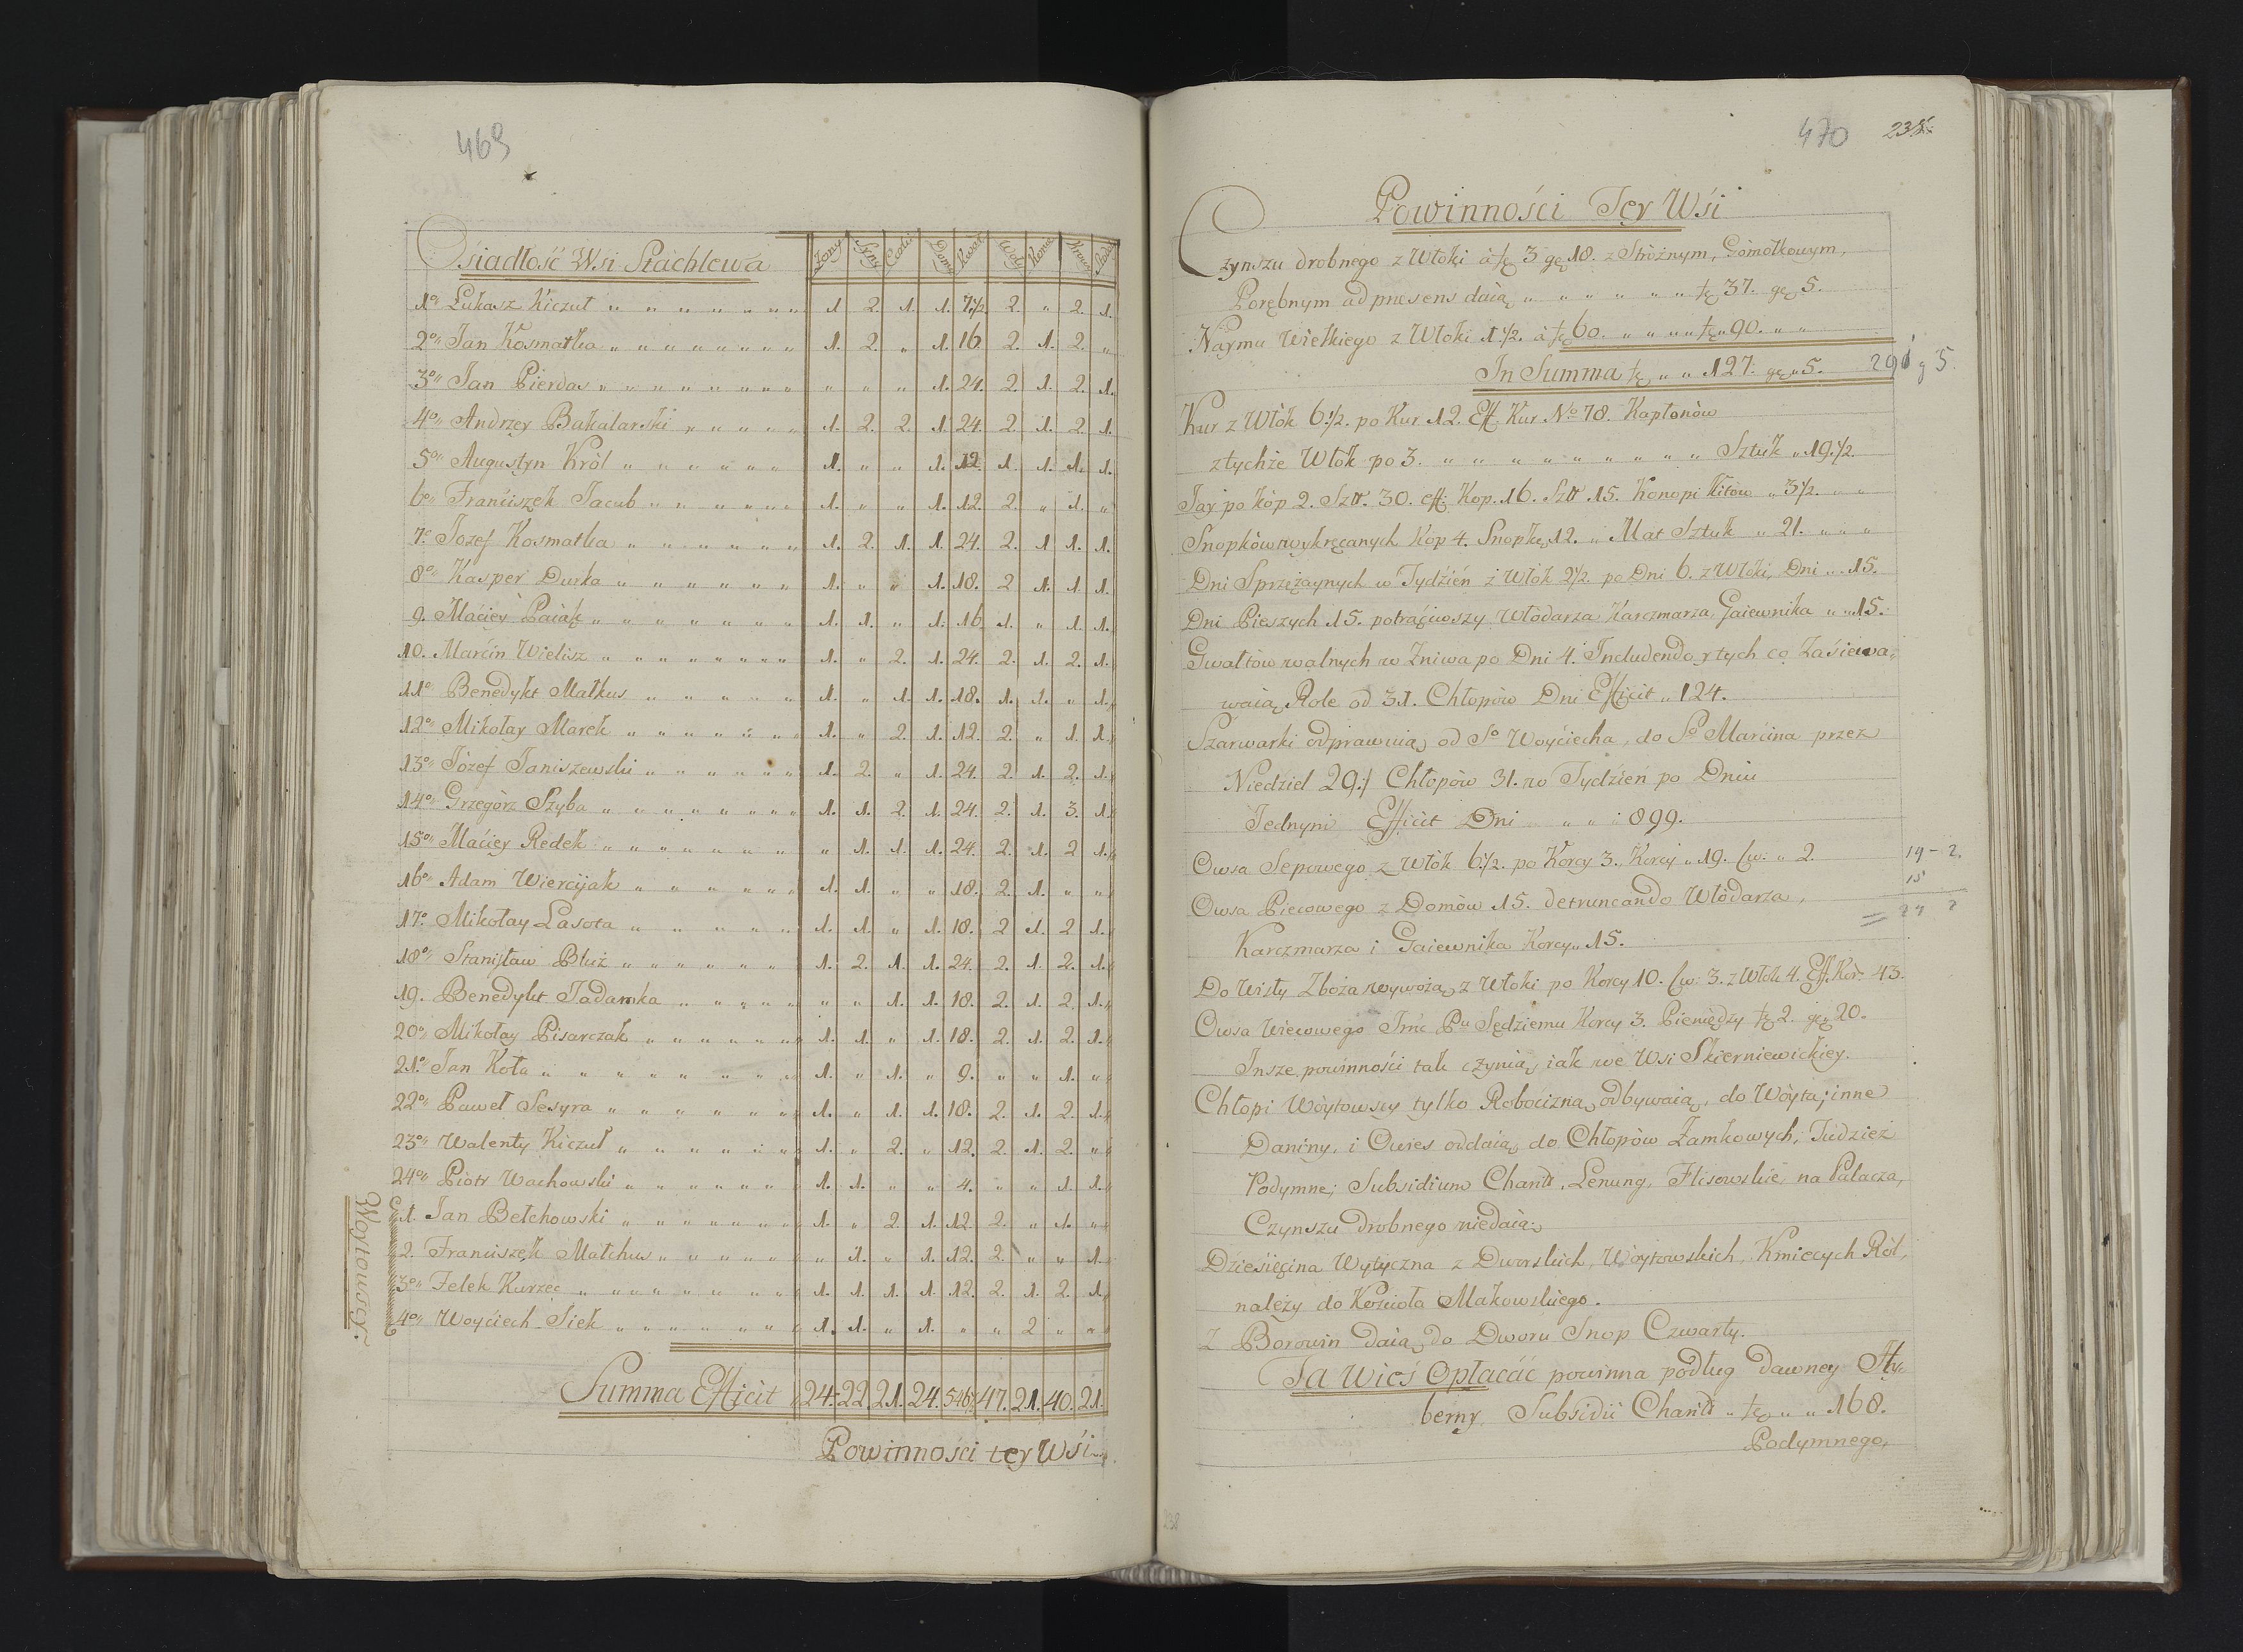 469
Osiadłość Wsi Stachlewa Żony Syny Corki Domy Kwart Woły Konie Krowy
1o Łukasz Kiczut „ „ „ „ „ „ „ 1 2. 1. 1. 7 1/2 2. „ 2. 1.
2o Jan Kosmatka „ „ „ „ „ „ „ 1. 2. „ 1. 16 2. 1. 2. „
3o Jan Pierdas „ „ „ „ „ „ „ „ „ „ 1. 24. 2. 1. 2. 1.
4o Andrzey Bakalarski „ „ „ „ „ 1. 2. 2. 1. 24. 2. 1. 2. 1.
5o Augustyn Król „ „ „ „ „ „ 1. „ „ 1. 12. 1. 1. 1. 1.
6o Franciszek Jacub „ „ „ „ „ „ 1. „ „ 1. 12. 2. „ 1. „
7o Jozef Kosmatka „ „ „ „ „ „ 1. 2. 1. 1. 24. 2. 1 1. 1.
8o Kasper Durka „ „ „ „ „ „ 1. „ „ 1. 18. 2 1. 1. 1.
9. Maciey Paiąk „ „ „ „ „ „ „ 1. 1. „ 1. 16. 1. „ 1. 1.
10. Marcin Wielisz „ „ „ „ „ „ „ 1. „ 2. 1. 24. 2. 1. 2. 1.
11o Benedykt Matkus „ „ „ „ „ 1. „ 1. 1. 18. 1. 1. „ 1.
12o Mikołay Marek „ „ „ „ „ „ 1. „ 2. 1. 12. 2. „ 1. 1.
13o Józef Janiszewski „ „ „ „ „ „ 1. 2. „ 1. 24. 2. 1. 2. 1.
14o Grzegórz Szyba „ „ „ „ „ „ „ 1. 1. 2. 1. 24. 2. 1. 3. 1.
15o Maciey Redek „ „ „ „ „ „ „ „ 1. 1. 1. 24. 2. 1. 2 1.
16o Adam Wiercijak „ „ „ „ „ „ 1. 1. „ „ 18. 2. 1. „ „
17o Mikołay Lasota „ „ „ „ „ „ 1. 1. „ 1. 18. 2 1. 2 1.
18o Stanisław Bluż „ „ „ „ „ „ 1. 2. 1. 1. 24. 2. 1. 2. 1.
19. Benedykt Jadamka „ „ „ „ „ „ „ 1. 1. 18. 2. 1. 2. 1.
20o Mikołay Pisarczak „ „ „ „ „ „ 1. 1. „ 1. 18. 2. 1. 2. 1.
21o Jan Koła „ „ „ „ „ „ „ „ 1. „ 1. „ 9. „ „ 1. „
22o Paweł Sesyra „ „ „ „ „ „ „ 1. „ 1. 1. 18. 2. 1. 2. 1.
23o Walenty Kiczuł „ „ „ „ „ „ 1. „ 2. „ 12. 2. 1. 2. „
24o Piotr Wachowski „ „ „ „ „ „ 1. 1. „ „ 4. „ „ 1. 1.
Woytowscy.
1. Jan Betchowski „ „ „ „ „ „ 1. „ 2 1. 12. 2. „ 1. „
2. Franciszek Matchus „ „ „ „ „ „ „ 1. „ 1. 12. 2. „ „ 1.
3o Felek Kurzec „ „ „ „ „ „ „ 1. 1. 1. 1. 12. 2. 1. 2. 1.
4o Woyciech Siek „ „ „ „ „ „ „ 1. 1. „ 1. „ „ 2 „ „
Summa Efficit 24. 22. 21. 24. 47. 21. 40. 21.
Powinności tey Wśi
470
Powinności Tey Wśi
Czynszu drobnego z Włoki à tę 3 gę 18. z Stróżnym, Gomołkowym,
Porębnym ad prasens daią „ „ „ „ „ „ tę 37. gę 5.
Naymu Wielkiego z Włoki 1 1/2. à tę 60. „ „ „ „ tę „ 90. „ „
In Summa tę „ „ 127. gę „ 5.
Kur z Włók 6 1/2. po Kur 12. Eff. Kur No 78. Kapłonów
z tychże Włók po 3. „ „ „ „ „ „ „ „ „ Sztuk „ 19 1/2.
Jay po kóp 2. Szt. 30. eff: Kop. 16. Szt 15. Konopi Kitow „ 3 1/2. „ „
Snopków wykręcanych Kop 4. Snopkę 12. „ Mat Sztuk „ 21. „ „ „
Dni Sprzężaynych w Tydźień z Włók 2 1/2. po Dni 6. z Włoki, Dni „ 15.
Dni Pieszych 15. potrąciwszy Włodarza Karczmarza, Gaiewnika „ „ 15.
Gwałtów walnych w Żniwa po Dni 4. Includendo y tych co Zaśiewa-
waią Role od 31. Chłopów Dni Efficit „ 124.
Szarwarki odprawuią od So Woyciecha, do So Marcina przez
Niedziel 29 :/ Chłopów 31. w Tydźień po Dniu
Jednym Efficit Dni „ „ 899.
Owsa Sepowego z Włók 6 1/2. po Korcy 3. Korcy „ 19. Cw. „ 2. 19 - 2.
15
Owsa Piecowego z Domów 15. detruncando Włódarza,
Karczmarza i Gaiewnika Korcy „ 15.
Do Wisły Zboża wywożą z Włoki po Korcy 10. Cw: 3. z Włók 4. Eff. Kor: 43.
Owsa Wiecowego Jmć Pu Sędziemu Korcy 3. Pieniędzy tę 2. gę 20.
Insze powinności tak czynią, iak we Wsi Skierniewickiey.
Chłopi Wóytowscy tylko Robociznę odbywaią, do Wóyta; inne
Daniny, i Owies oddaią do Chłopów Zamkowych, Tudzież
Podymne, Subsidium Charitt. Lenung, Flisowskie, na Pałacza,
Czynszu drobnego niedaią.
Dziesięcina Wytyczna z Dworskich, Wóytowskich, Kmiecych Ról,
należy do Kościoła Makowskiego.
Z Borowin daią do Dworu Snop Czwarty.
Ta Wieś Opłacać powinna podług dawney Hy-
berny Subsidii Charitt „ tę „ „ 168.
Podymnego,